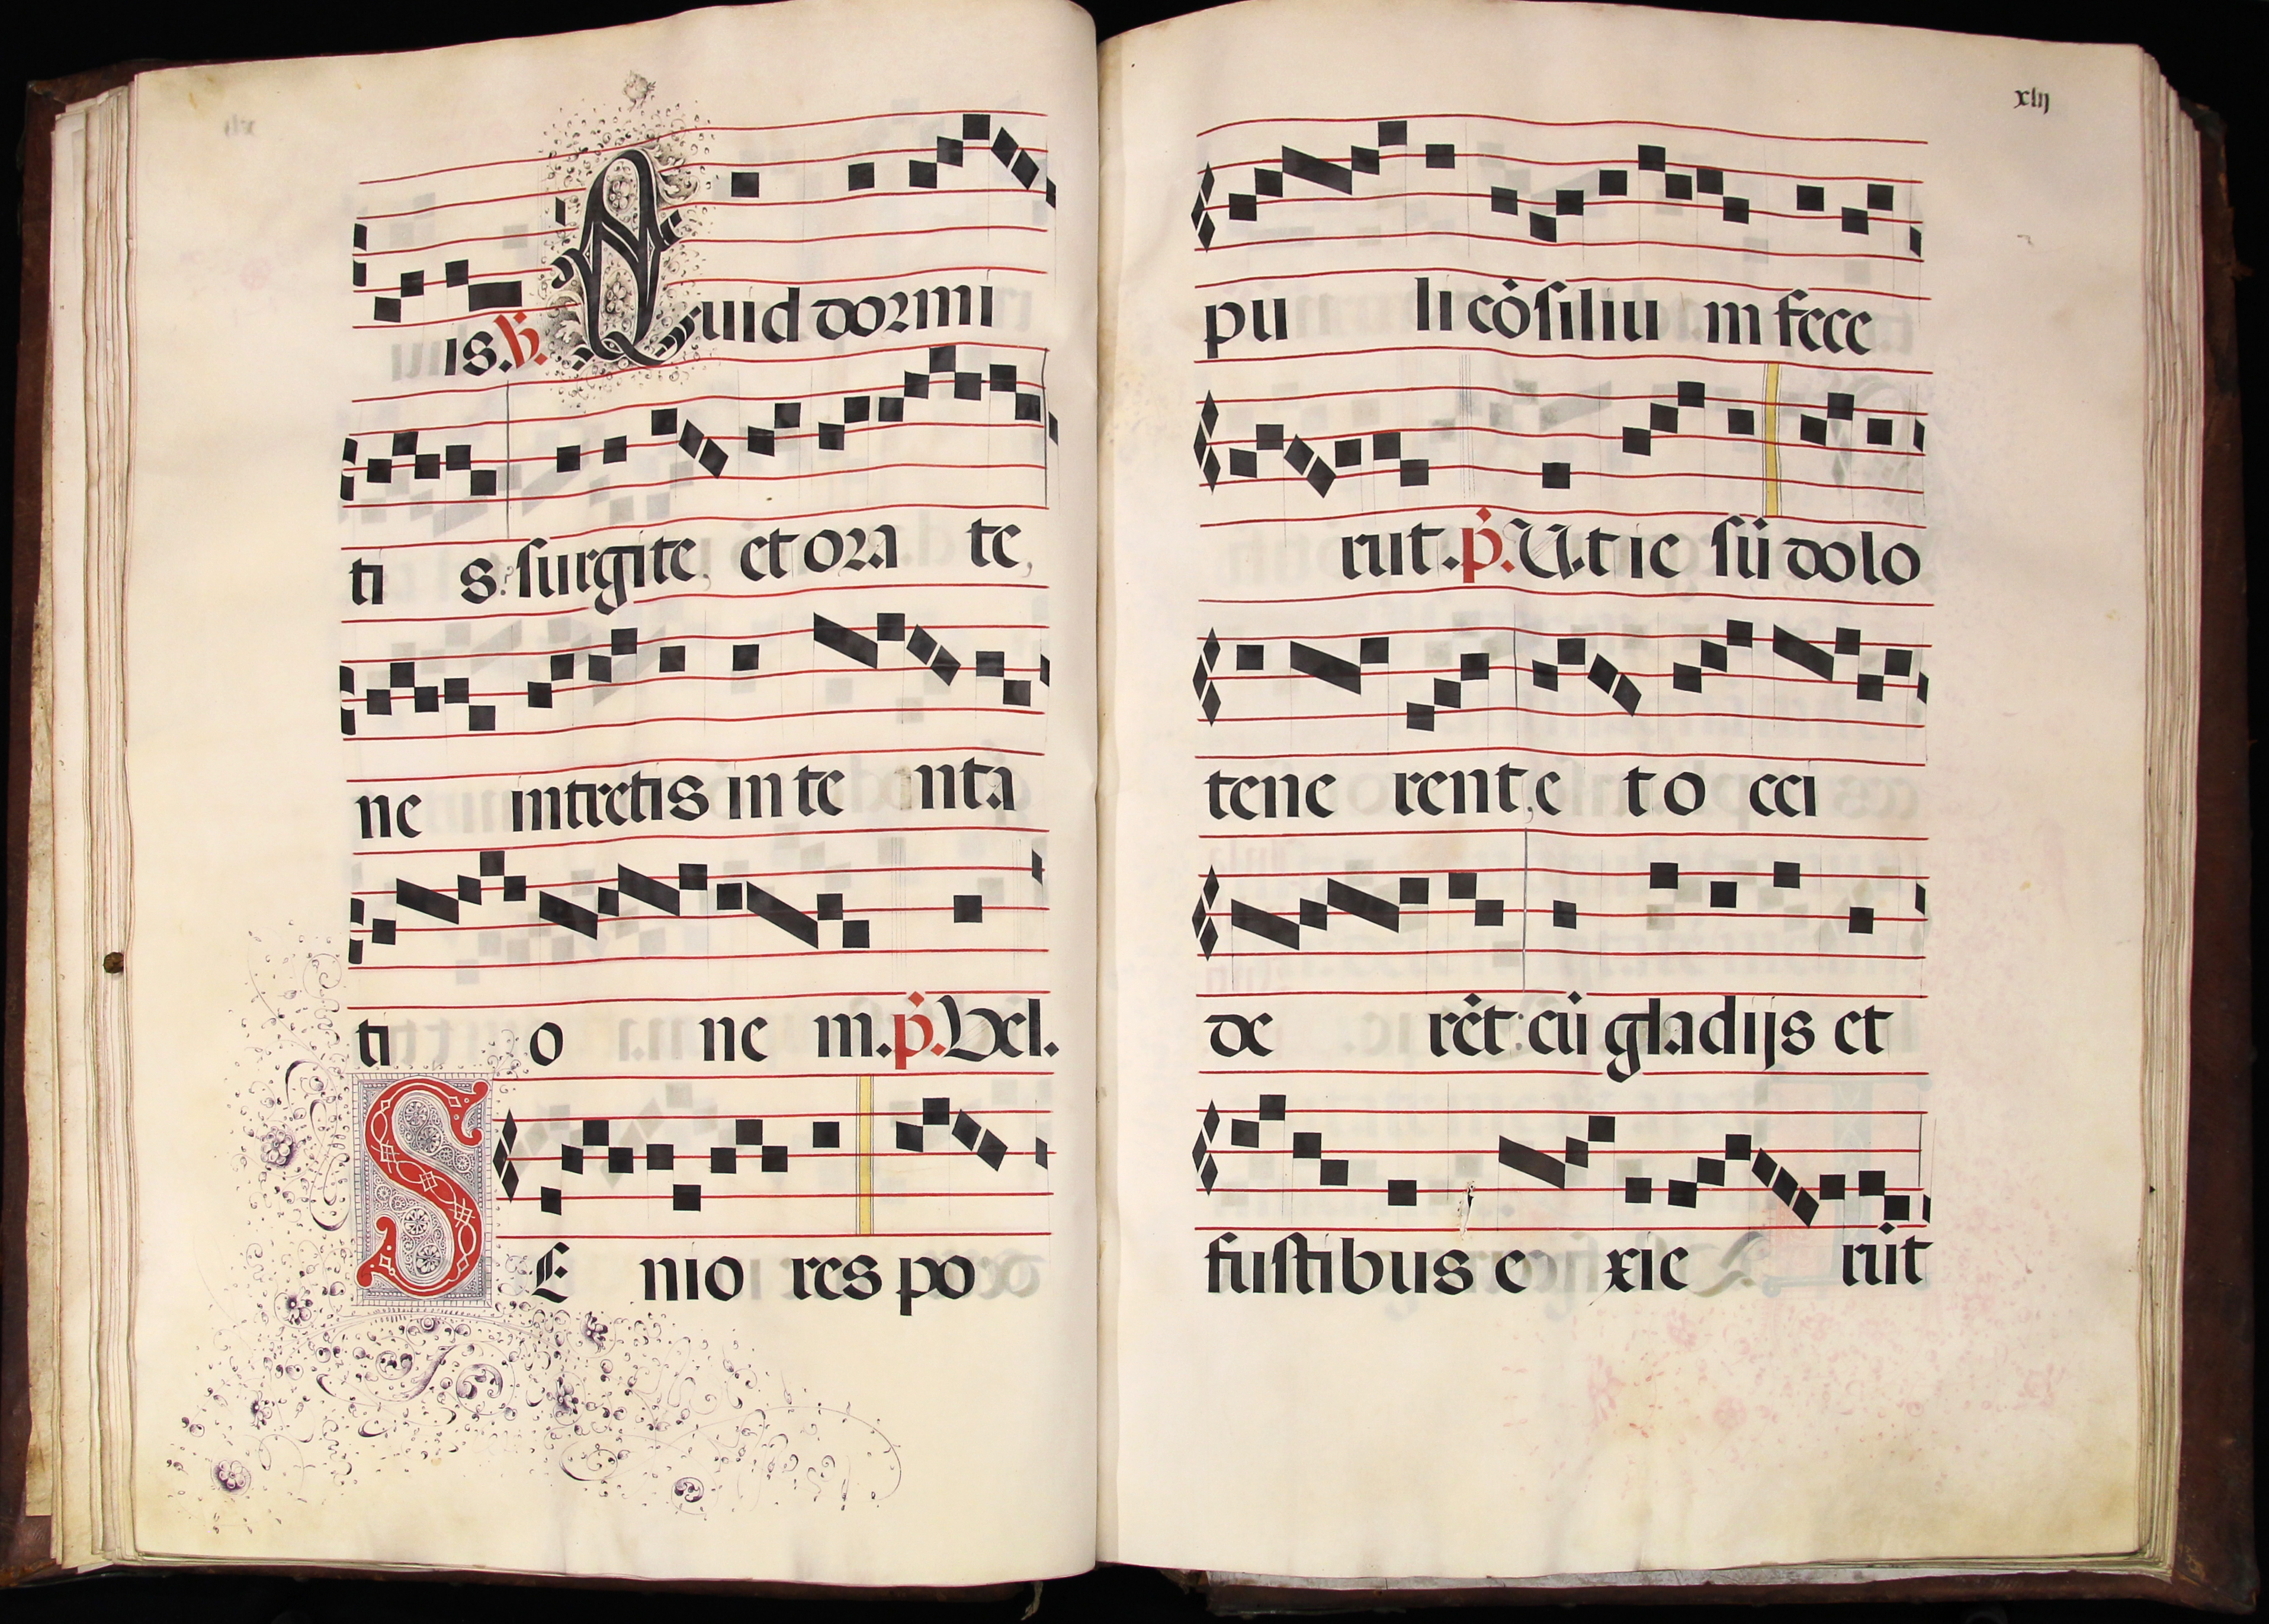 is. ℣. Quid dormi
ti s? surgite, et ora te,
ne intretis in te nta
ti o ne m. ṗ. Vel.
SE nio res po
xlij
pu li cōsiliu m fece
rut. ṗ. Ut ie sū dolo
tene rent, e t o cci
de rēt: cū gladijs et
fustibus e xie rūt